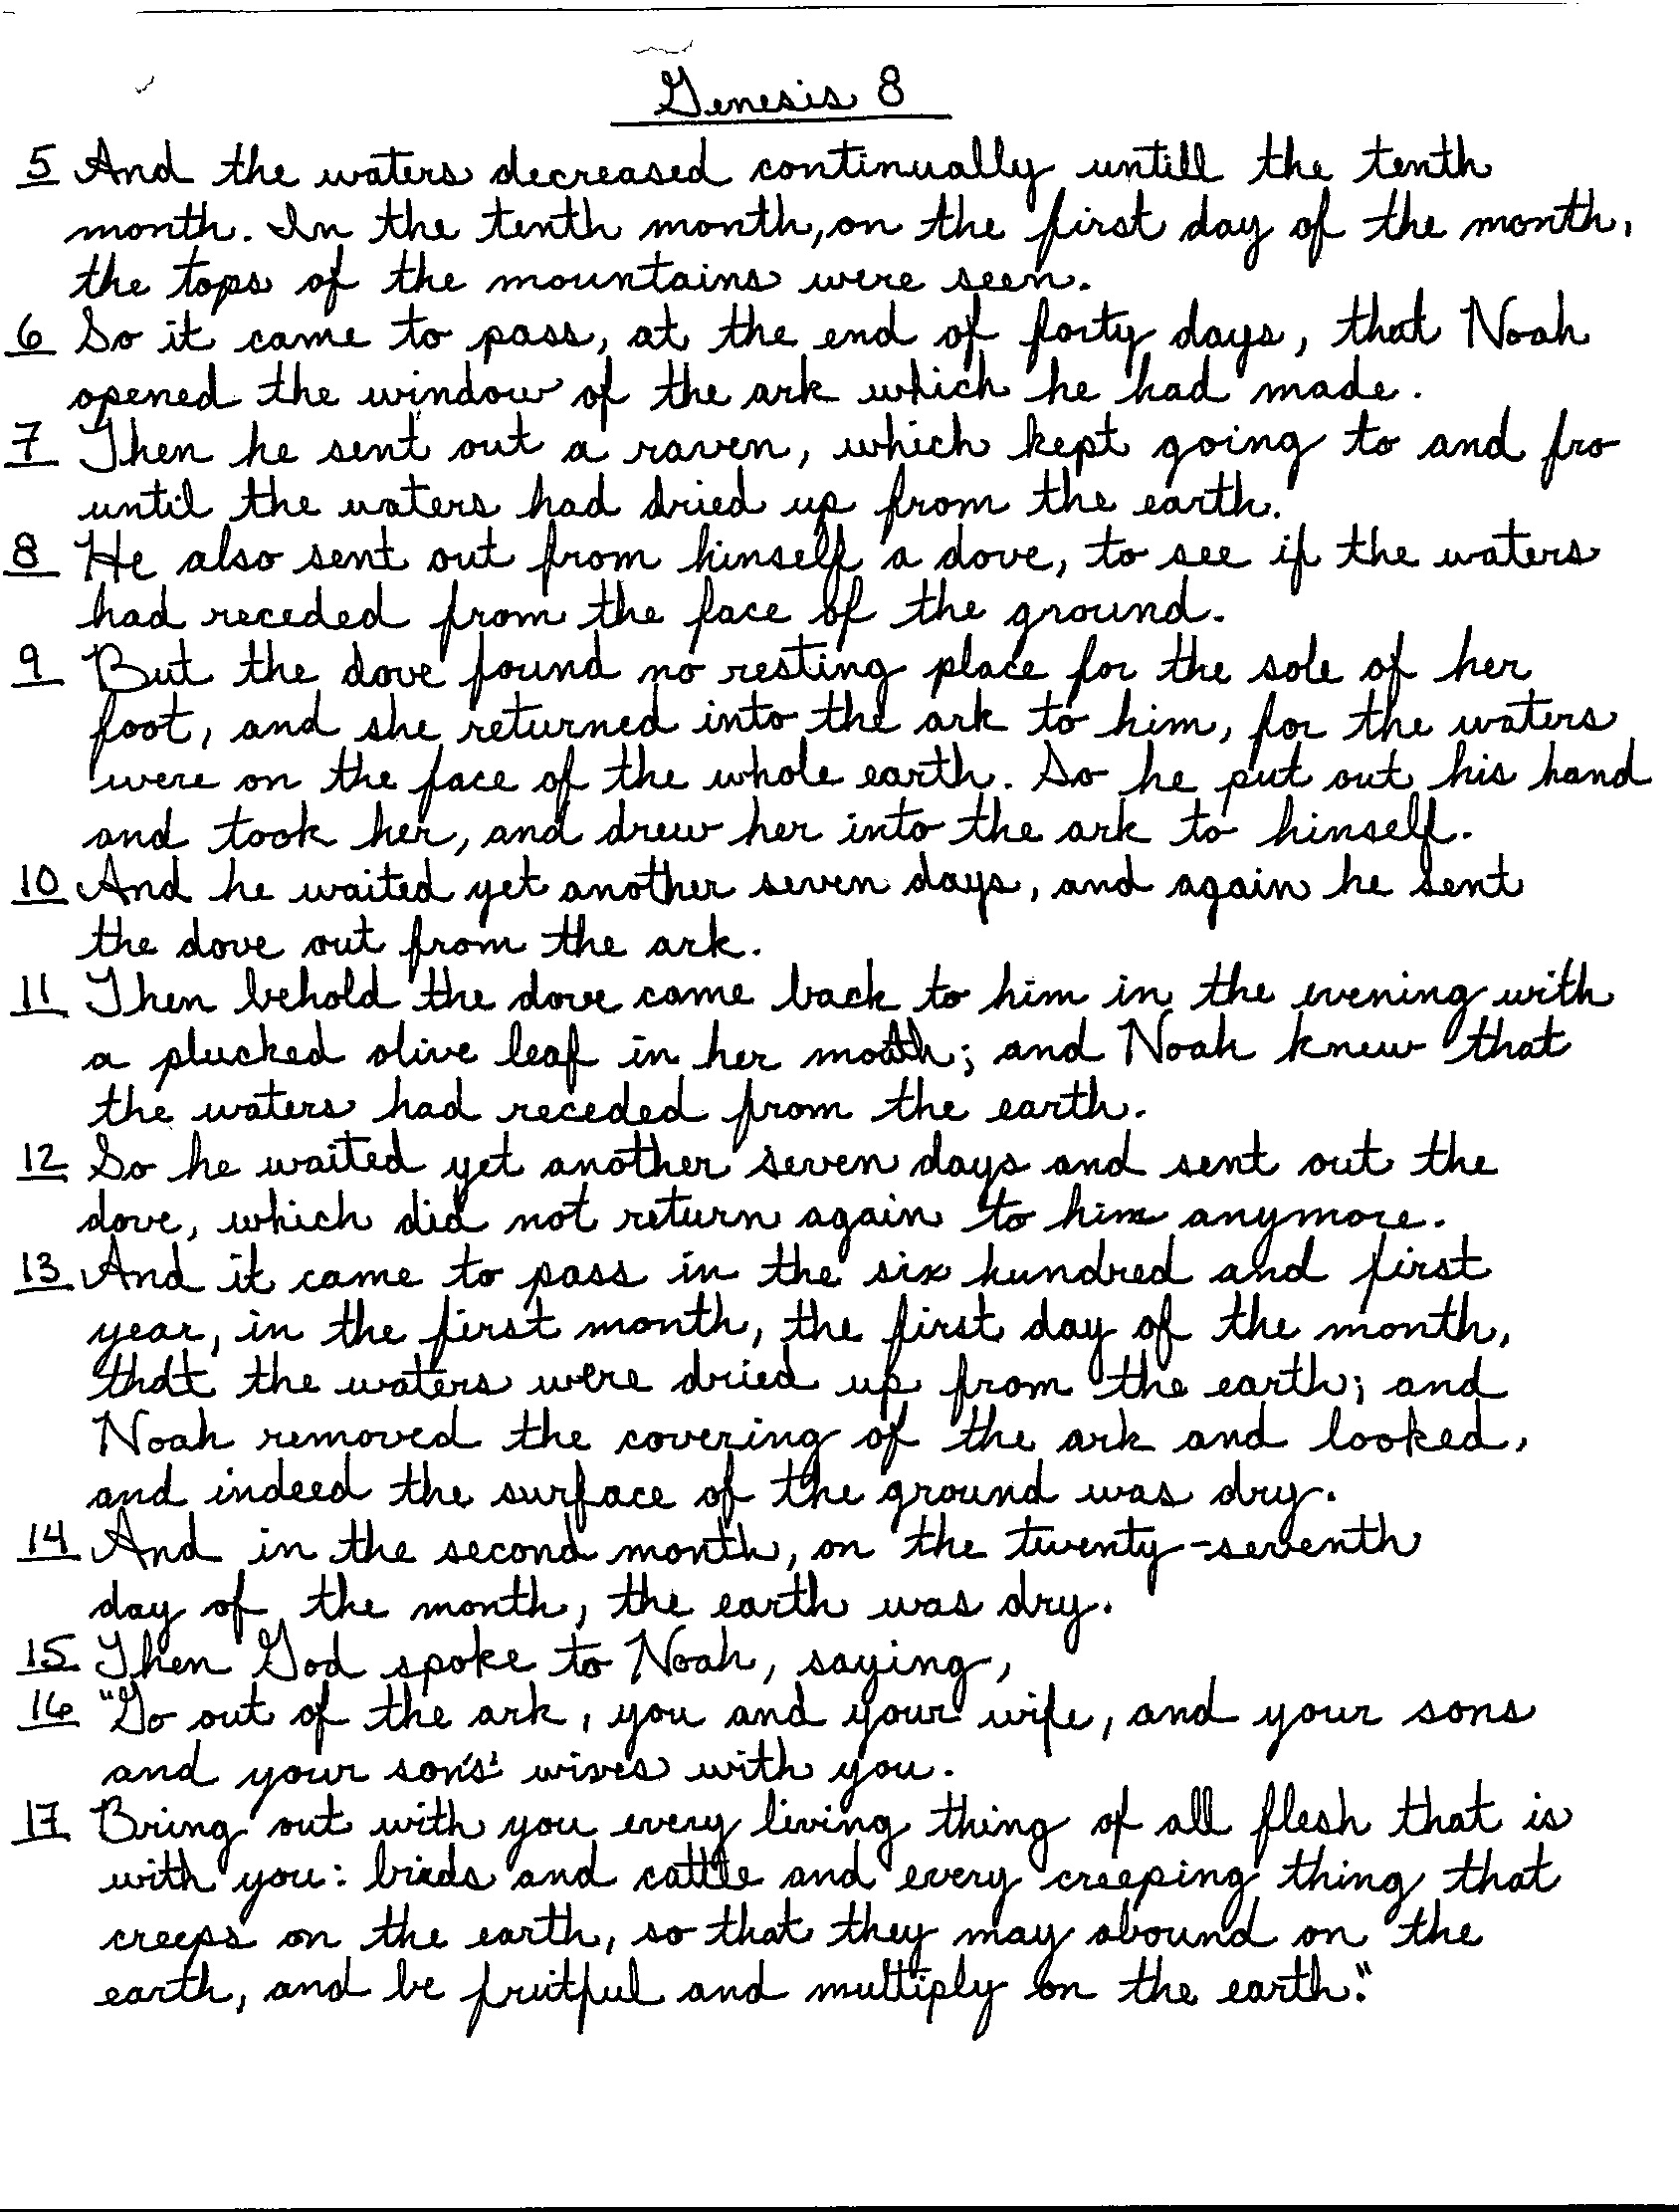 Genesis 8
5 And the waters decreased continually untill the tenth
month. In the tenth month, on the first day of the month,
the tops of the mountains were seen.
6 So it came to pass, at the end of forty days, that Noah
opened the window of the ark which he had made.
7 Then he sent out a raven, which kept going to and fro
until the waters had dried up from the earth.
8 He also sent out from himself a dove, to see if the waters
had receded from the face of the ground.
9 But the dove found no resting place for the sole of her
foot, and she returned into the ark to him, for the waters
were on the face of the whole earth. So he put out his hand
and took her, and drew her into the ark to himself.
10 And he waited yet another seven days, and again he sent
the dove out from the ark.
11 Then behold the dove came back to him in the evening with
a plucked olive leaf in her mouth; and Noah knew that
the waters had receded from the earth.
12 So he waited yet another seven days and sent out the
dove, which did not return again to him anymore.
13 And it came to pass in the six hundred and first
year, in the first month, the first day of the month,
that the waters were dried up from the earth; and
Noah removed the covering of the ark and looked,
and indeed the surface of the ground was dry.
14 And in the second month, on the twenty-seventh
day of the month, the earth was dry.
15 Then God spoke to Noah, saying,
16 "Go out of the ark, you and your wife, and your sons
and your son's' wives with you.
17 Bring out with you every living thing of all flesh that is
with you: birds and cattle and every creeping thing that
creeps on the earth, so that they may abound on the
earth, and be fruitful and multiply on the earth."